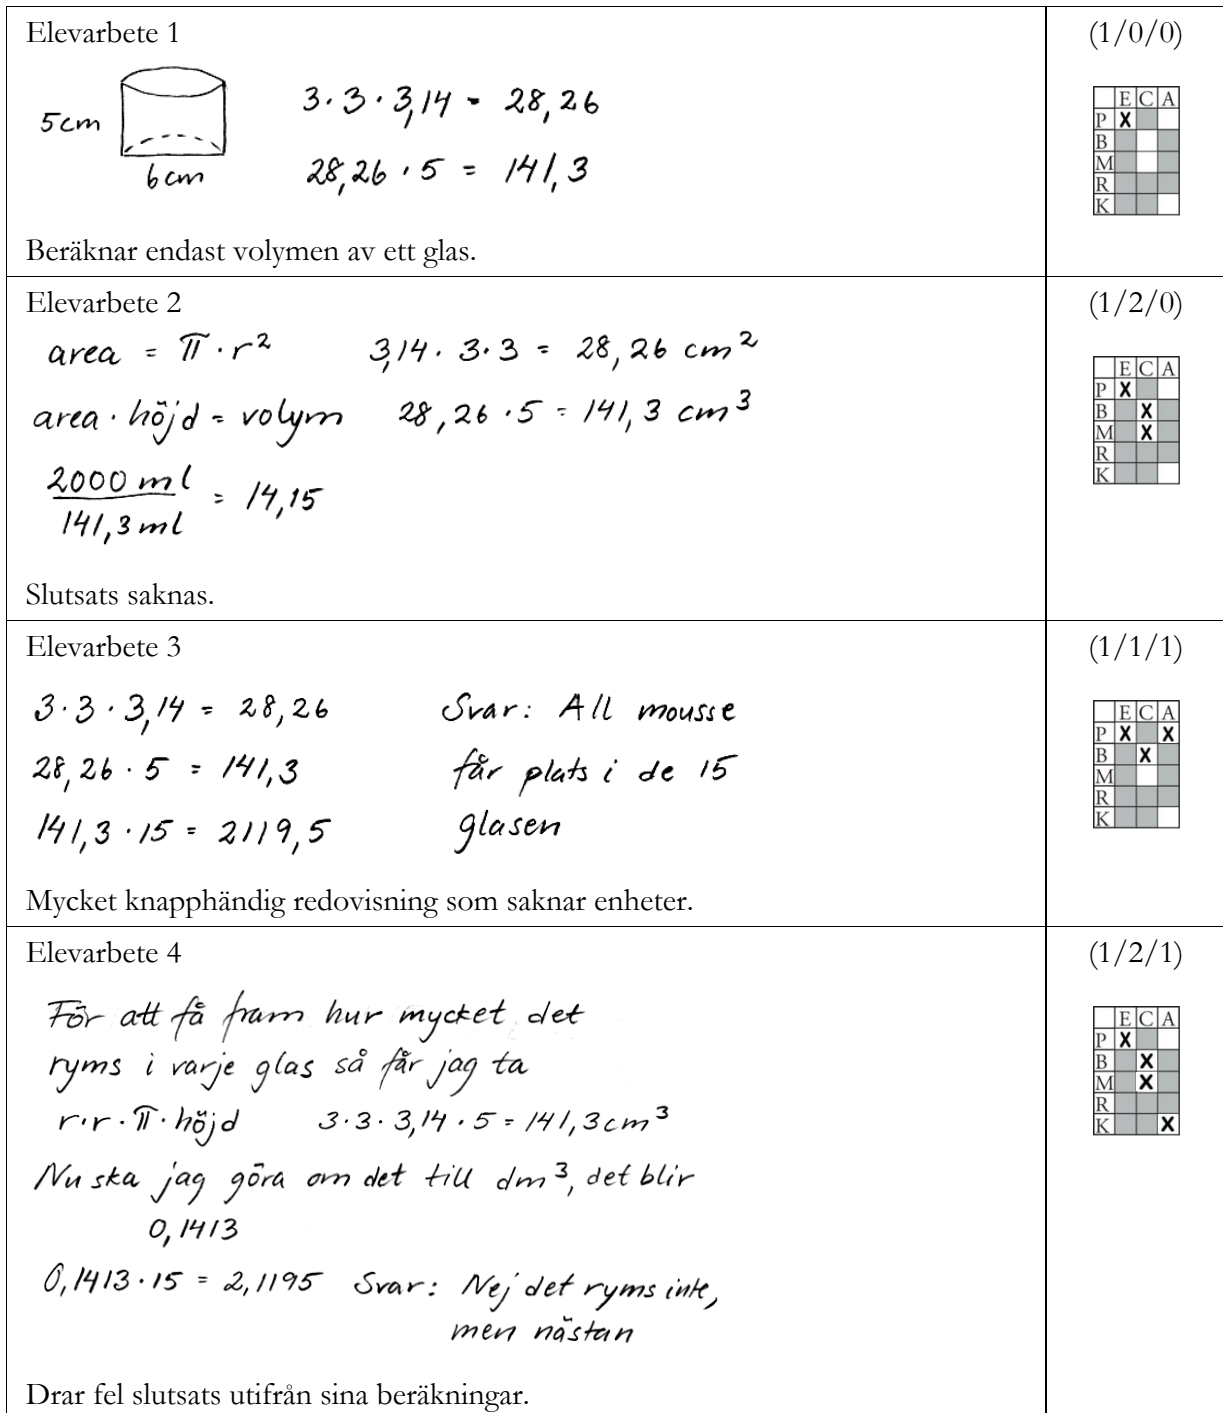 Elevarbete 1
(1/0/0)
5cm
6cm
3·3·3,14 = 28,26
28,26 · 5 = 141,3
E C A
P X
B
M
R
K
Beräknar endast volymen av ett glas.
Elevarbete 2
(1/2/0)
area = π · r² 3,14 · 3·3 = 28,26 cm²
area · höjd = volym 28,26 · 5 = 141,3 cm³
2000 ml
141,3 ml
= 14,15
E C A
P X
B X
M X
R
K
Slutsats saknas.
Elevarbete 3
(1/1/1)
3·3·3,14 = 28,26
28,26 · 5 = 141,3
141,3 · 15 = 2119,5
Svar: All mousse
får plats i de 15
glasen
E C A
P X X
B X
M
R
K
Mycket knapphändig redovisning som saknar enheter.
Elevarbete 4
(1/2/1)
För att få fram hur mycket det
ryms i varje glas så får jag ta
r·r·π·höjd 3·3·3,14·5 = 141,3 cm³
Nu ska jag göra om det till dm³, det blir
0,1413
0,1413·15 = 2,1195 Svar: Nej det ryms inte,
men nästan
E C A
P X
B X
M X
R
K X
Drar fel slutsats utifrån sina beräkningar.